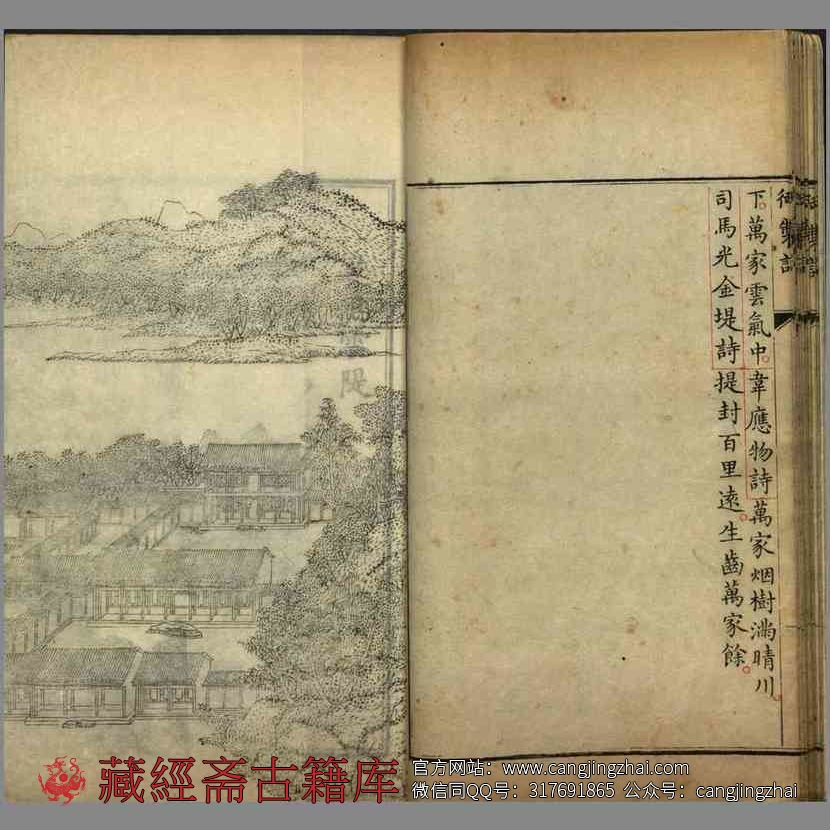 御製詩
下萬家雲氣中韋應物詩萬家烟樹滿晴川
司馬光金堤詩提封百里遠生齒萬家餘
藏經斋古籍库
官方网站：www.cangjingzhai.com
微信同QQ号：317691865 公众号：cangjingzhai